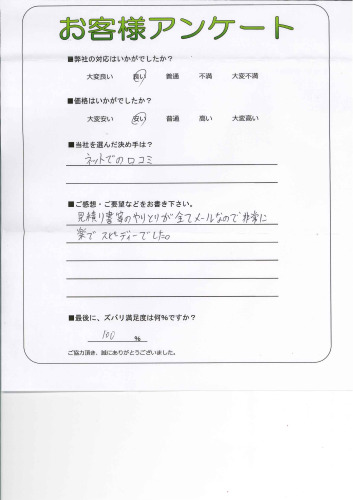 お客様アンケート
■弊社の対応はいかがでしたか？
大変良い 良い 普通 不満 大変不満
■価格はいかがでしたか？
大変安い 安い 普通 高い 大変高い
■当社を選んだ決め手は？
ネットでの口コミ
■ご感想・ご要望などをお書き下さい。
見積り書等のやりとりが全てメールなので非常に
楽でスピーディーでした。
■最後に、ズバリ満足度は何%ですか？
100 %
ご協力頂き、誠にありがとうございました。